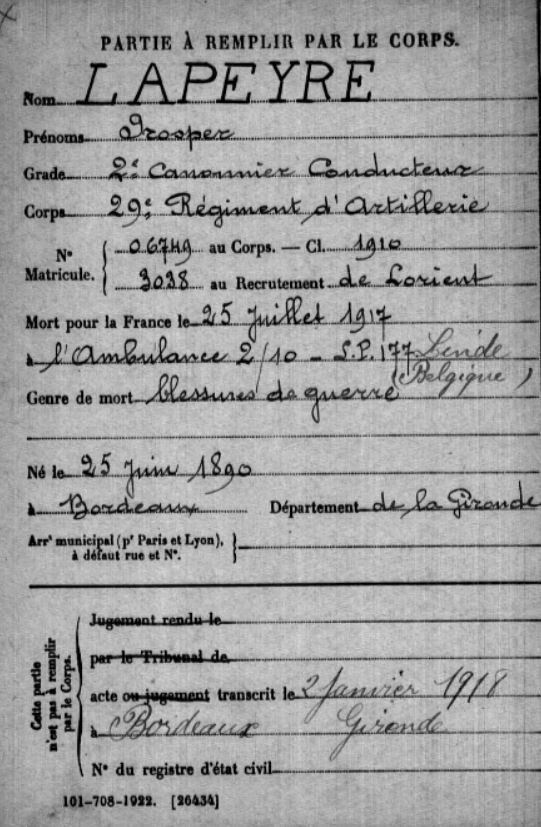 PARTIE À REMPLIR PAR LE CORPS.
Nom LAPEYRE
Prénoms Prosper
Grade 2e Canonnier Conducteur
Corps 29e Régiment d'Artillerie
N° Matricule. { 06749 au Corps. — Cl. 1910
3038 au Recrutement de Lorient
Mort pour la France le 25 Juillet 1917
à l'Ambulance 2/10 - S.P. 177 Linde
(Belgique)
Genre de mort blessures de guerre
Né le 25 Juin 1890
à Bordeaux Département de la Gironde
Arrt municipal (pr Paris et Lyon),
à défaut rue et N°. }
Cette partie n'est pas à remplir par le Corps.
Jugement rendu le
par le Tribunal de
acte ou jugement transcrit le 2 Janvier 1918
à Bordeaux Gironde
N° du registre d'état civil
101-708-1922. [26434]